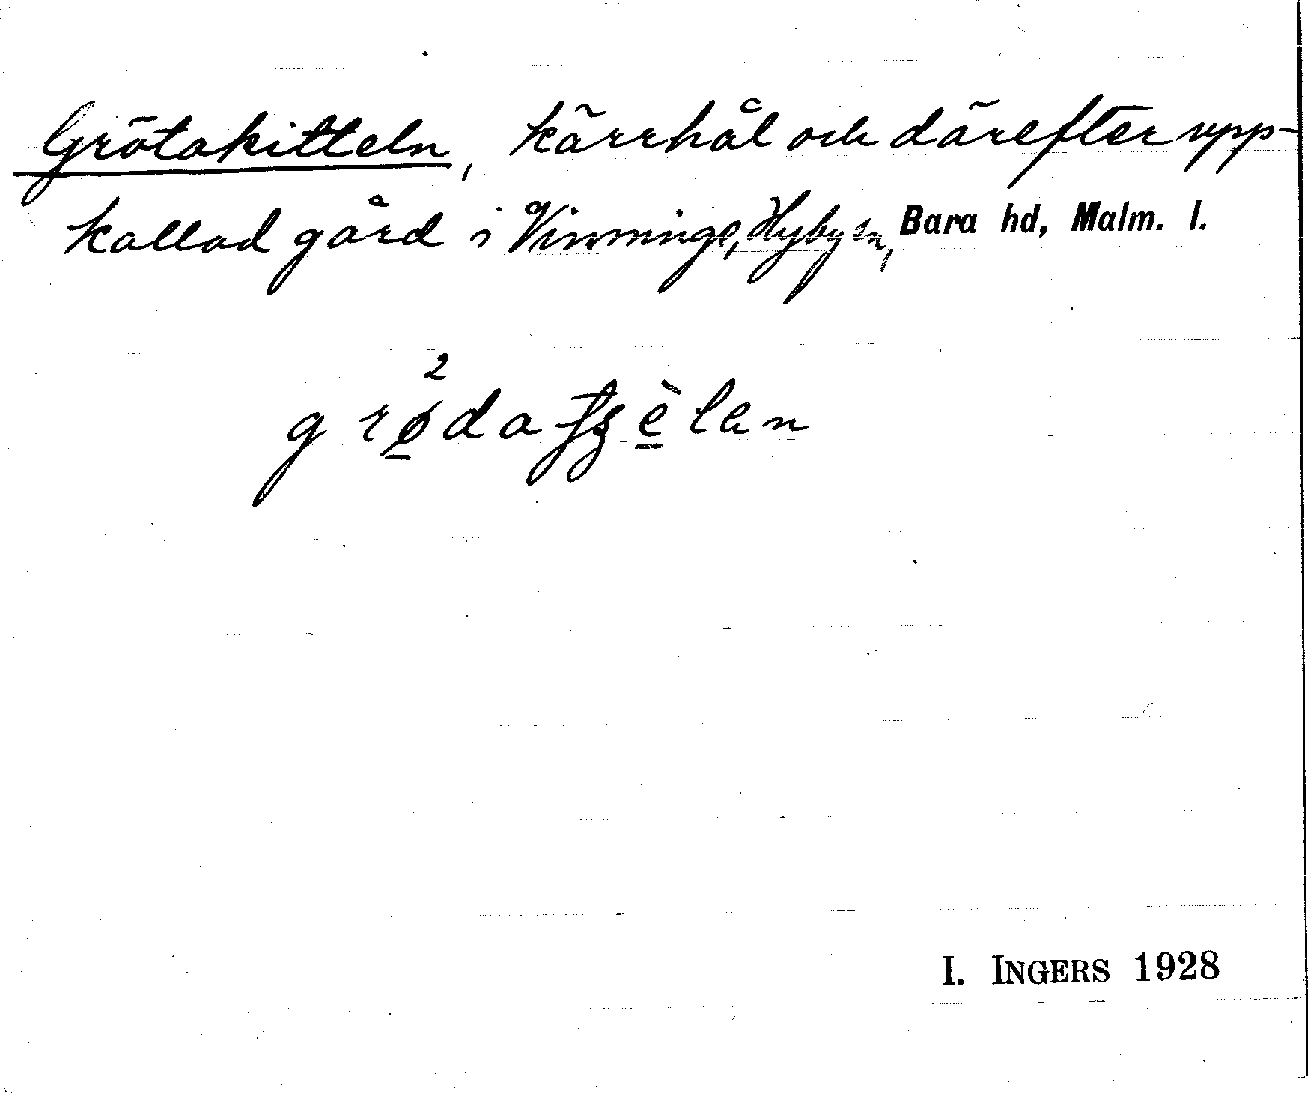 Grötakitteln, kärrhål och därefter upp-
kallad gård i Vinninge, Hyby sn, Bara hd, Malm. l.
I. INGERS 1928